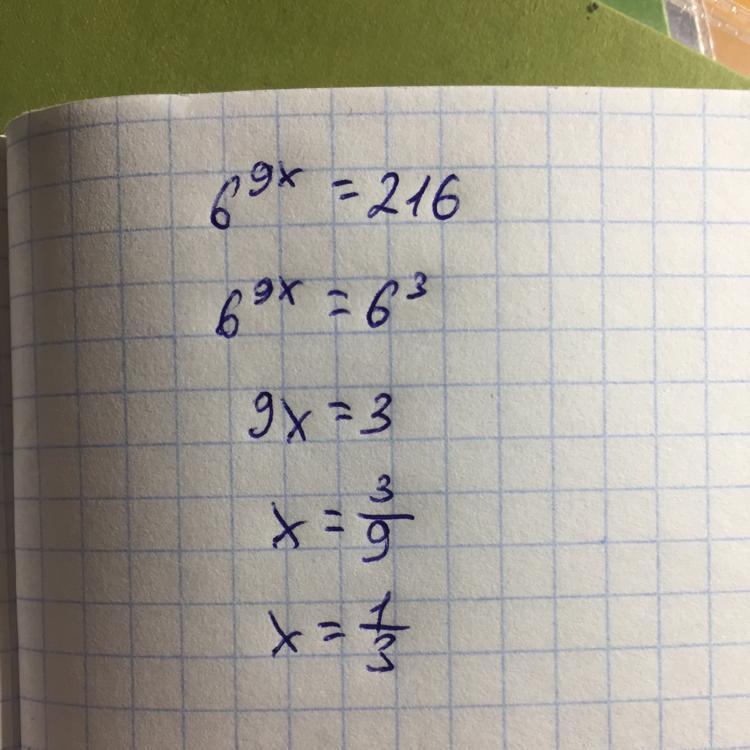 6^{9x} = 216
6^{9x} = 6^3
9x = 3
x = \frac{3}{9}
x = \frac{1}{3}